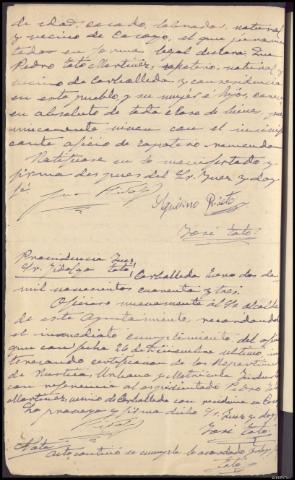 de edad, casado, labrador, natural
y vecino de Carazo, el que juramen
tado en forma legal declara: Que
Pedro Tato Martinez, zapatero, natural y
vecino de Carballeda y con residencia
en este pueblo y su mujer e hijos, carecen
en absoluto de toda clase de bienes, pues
unicamente viven con el
oficio de zapatero remendon
Ratificase en lo manifestado y
firma despues del Sr. Juez y doy
fé
Aquilino Prieto
José Tato
Providencia Juez
Sr. Hidalgo Tato
Carballeda Enero dos de
mil novecientos cuarenta y tres
Oficiese nuevamente al Sr. alcalde
de este Ayuntamiento recordando
el inmediato cumplimiento del oficio
que con fecha 26 de ultimo in
teresando certificacion de los Repartimientos
de Rustica, Urbana y Matricula
con referencia al expedientado Pedro Tato
Martinez, vecino de Carballeda con residencia en
Lo proveyo y firma dicho Sr. Juez y doy fé
José Tato
Nota
Acto continuo se cumple lo acordado doy fé
Tato